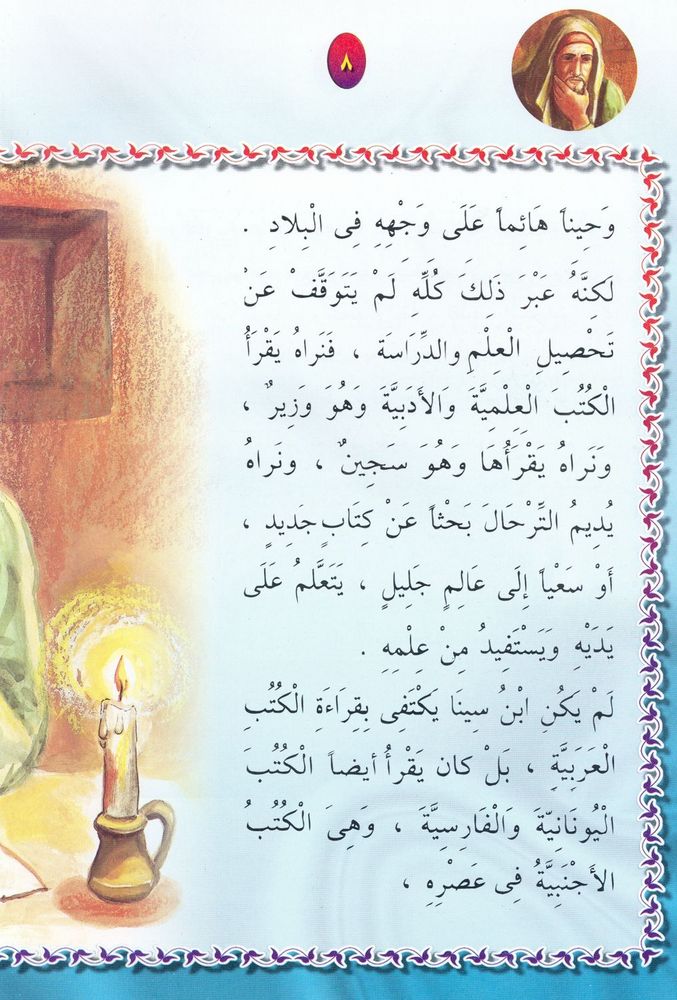 ٨
وَحِيناً هَائِماً عَلَى وَجْهِهِ فِى الْبِلادِ .
لَكِنَّهُ عَبْرَ ذَلِكَ كُلِّهِ لَمْ يَتَوَقَّفْ عَنْ
تَحْصِيلِ الْعِلْمِ والدِّرَاسَة ، فَنَراهُ يَقْرَأُ
الْكُتُبَ الْعِلْمِيَّةَ وَالأَدَبِيَّةَ وَهُوَ وَزِيرٌ ،
وَنَراهُ يَقْرَأُهَا وَهُوَ سَجِينٌ ، ونَراهُ
يُدِيمُ التِّرْحَالَ بَحْثاً عَنْ كِتَابٍ جَدِيدٍ ،
أَوْ سَعْياً إِلَى عَالِمٍ جَلِيلٍ ، يَتَعَلَّمُ عَلَى
يَدَيْهِ ويَسْتَفِيدُ مِنْ عِلْمِهِ .
لَمْ يَكُنِ ابْنُ سِينَا يَكْتَفِى بِقِرَاءَةِ الْكُتُبِ
الْعَرَبِيَّةِ ، بَلْ كان يَقْرأُ أيضاً الْكُتُبَ
الْيُونَانِيّةَ وَالْفَارِسِيَّةَ ، وَهِىَ الْكُتُبُ
الأَجْنَبِيَّةُ فِى عَصْرِهِ ،